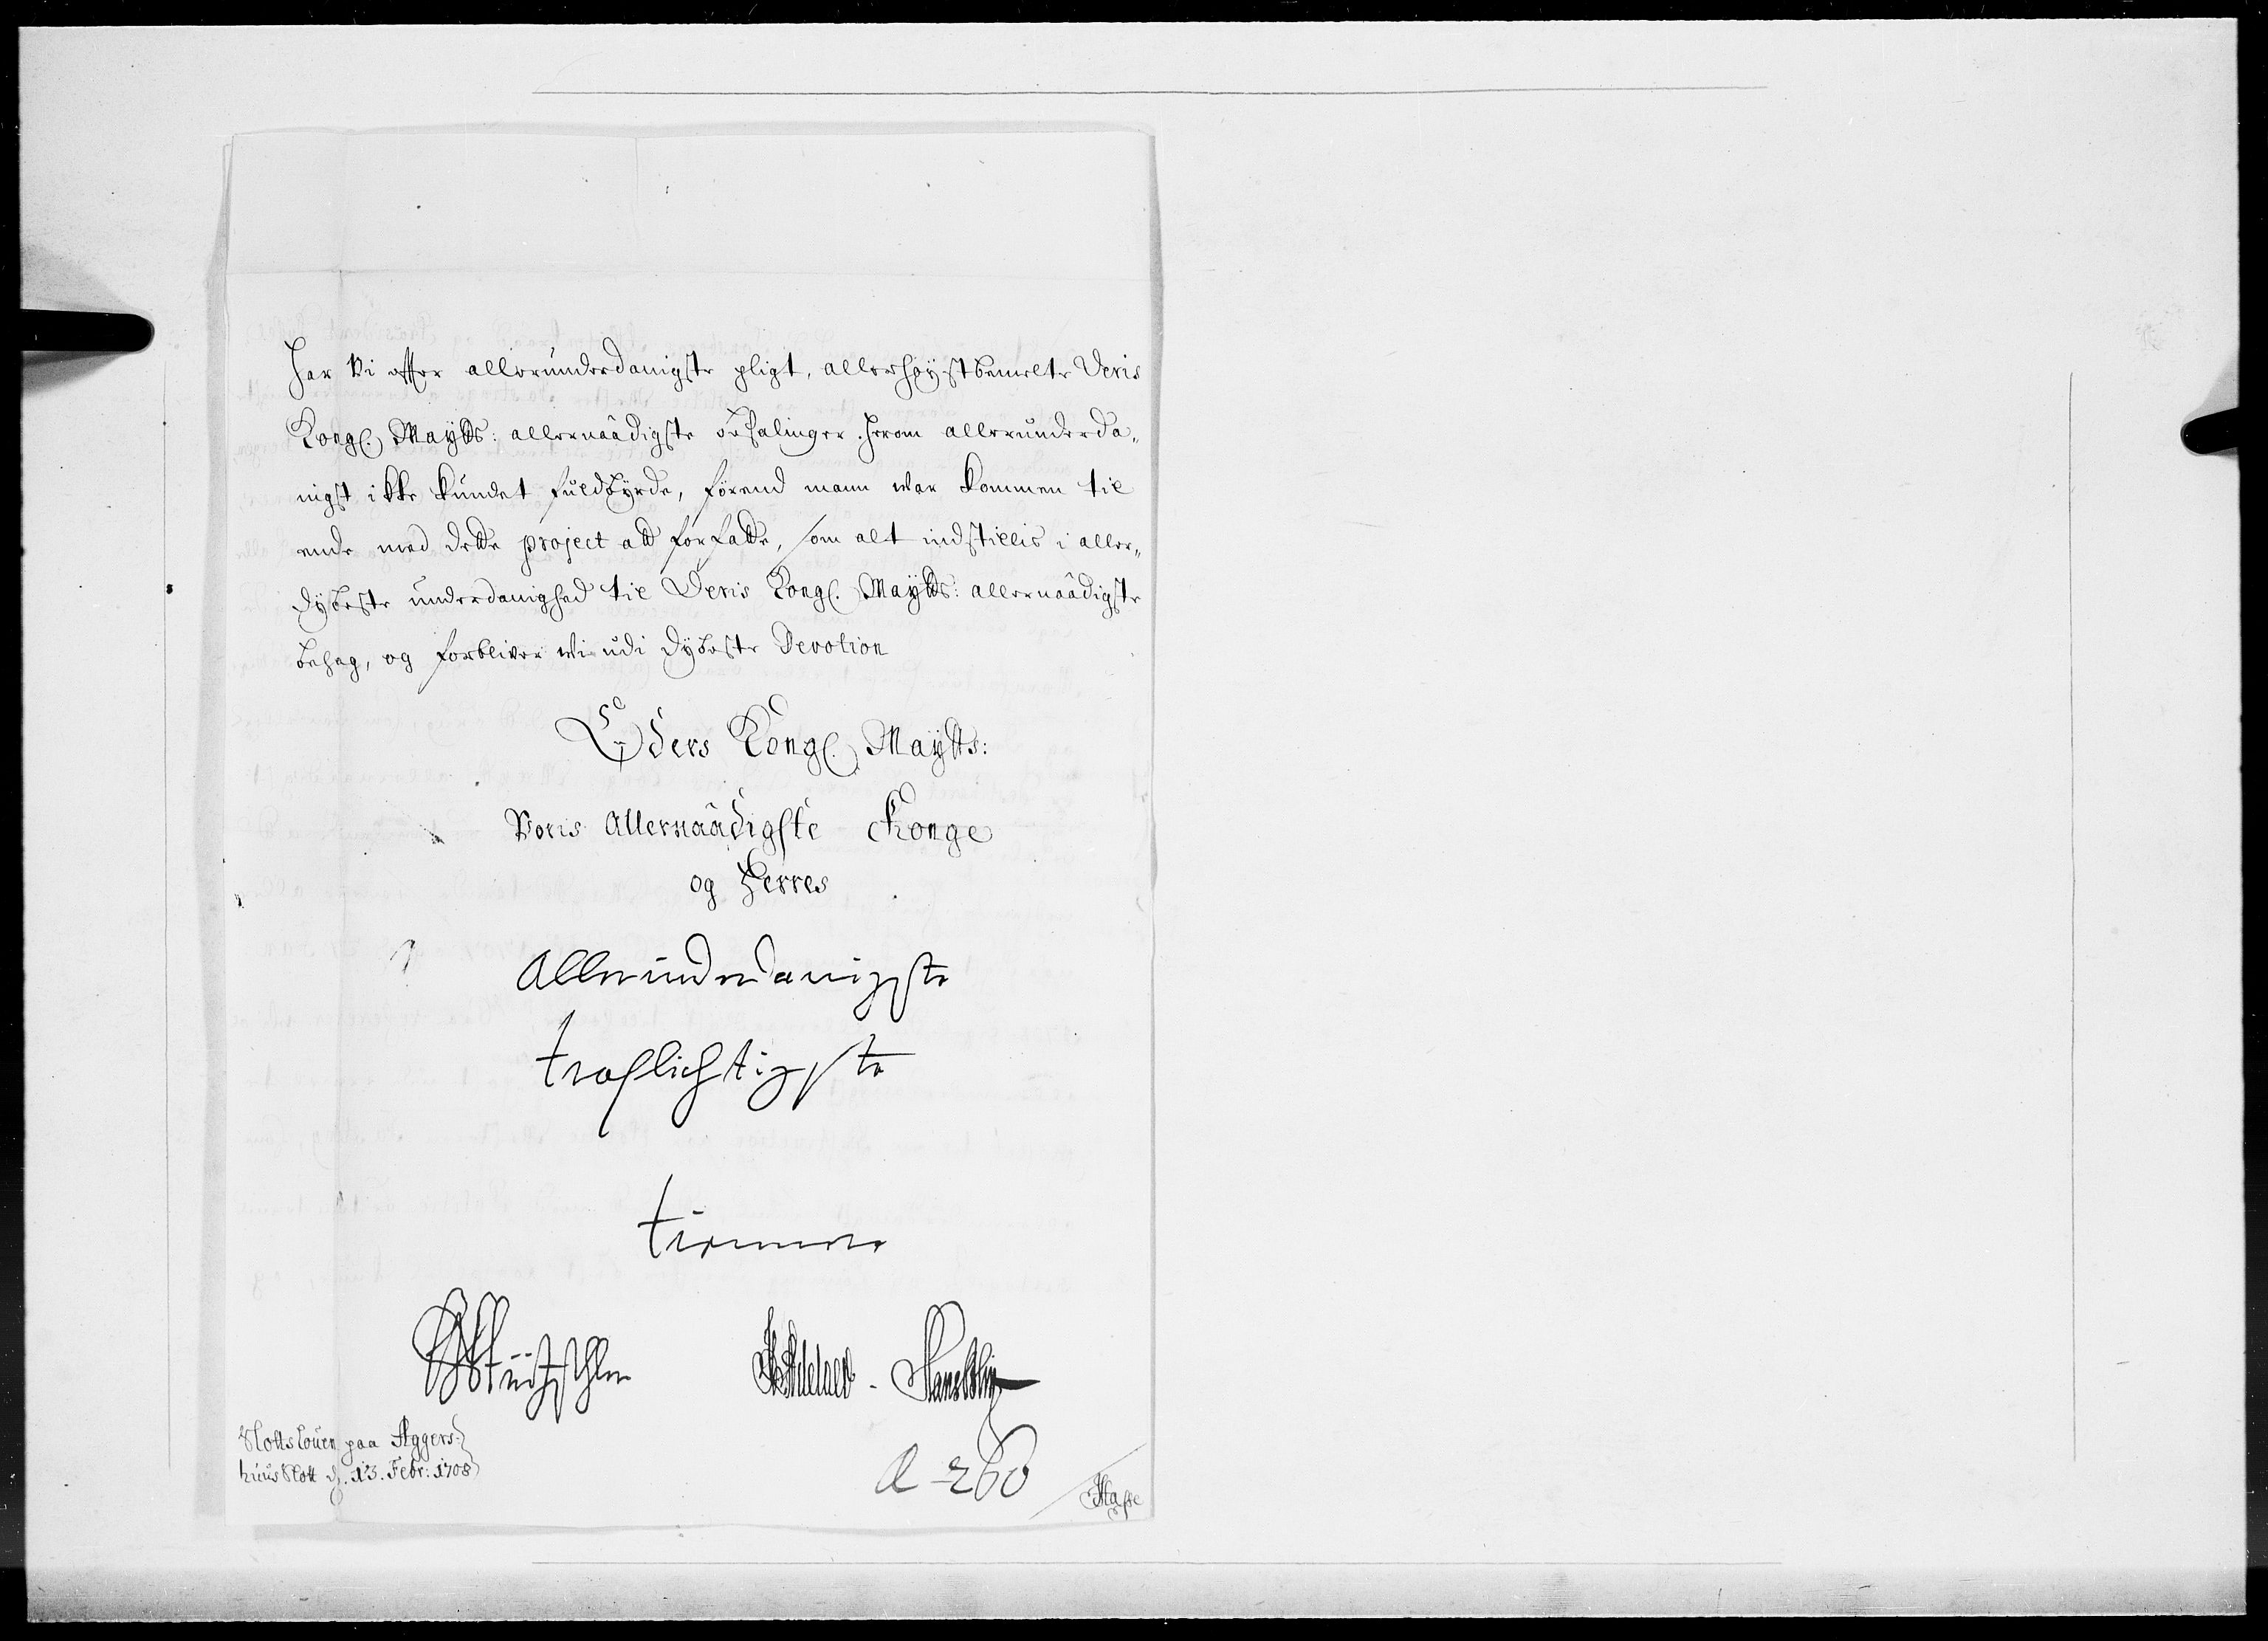 har Vi effter allerunderdanigste pligt, allerhøystbemelte Deris
Kongl. Maytts: allernaadigste befalinger herom allerunderda„
nigst ikke kundet fuldbyrde, førend mann war kommen til
ende med dette project att forfatte, som alt indstillis i aller„
dybeste underdanighed til Deris Kongl. Maytts: allernaadigste
behag, og forbliver wi udi dybeste Devotion
Eders Kongl. Maytts:
Voris Allernaadigste Konge
og Herres
Allerunderdanigste
tropligtigste
tiennere
Slottslouen paa Aggers-
huus Slott d. 13. Febr: 1708